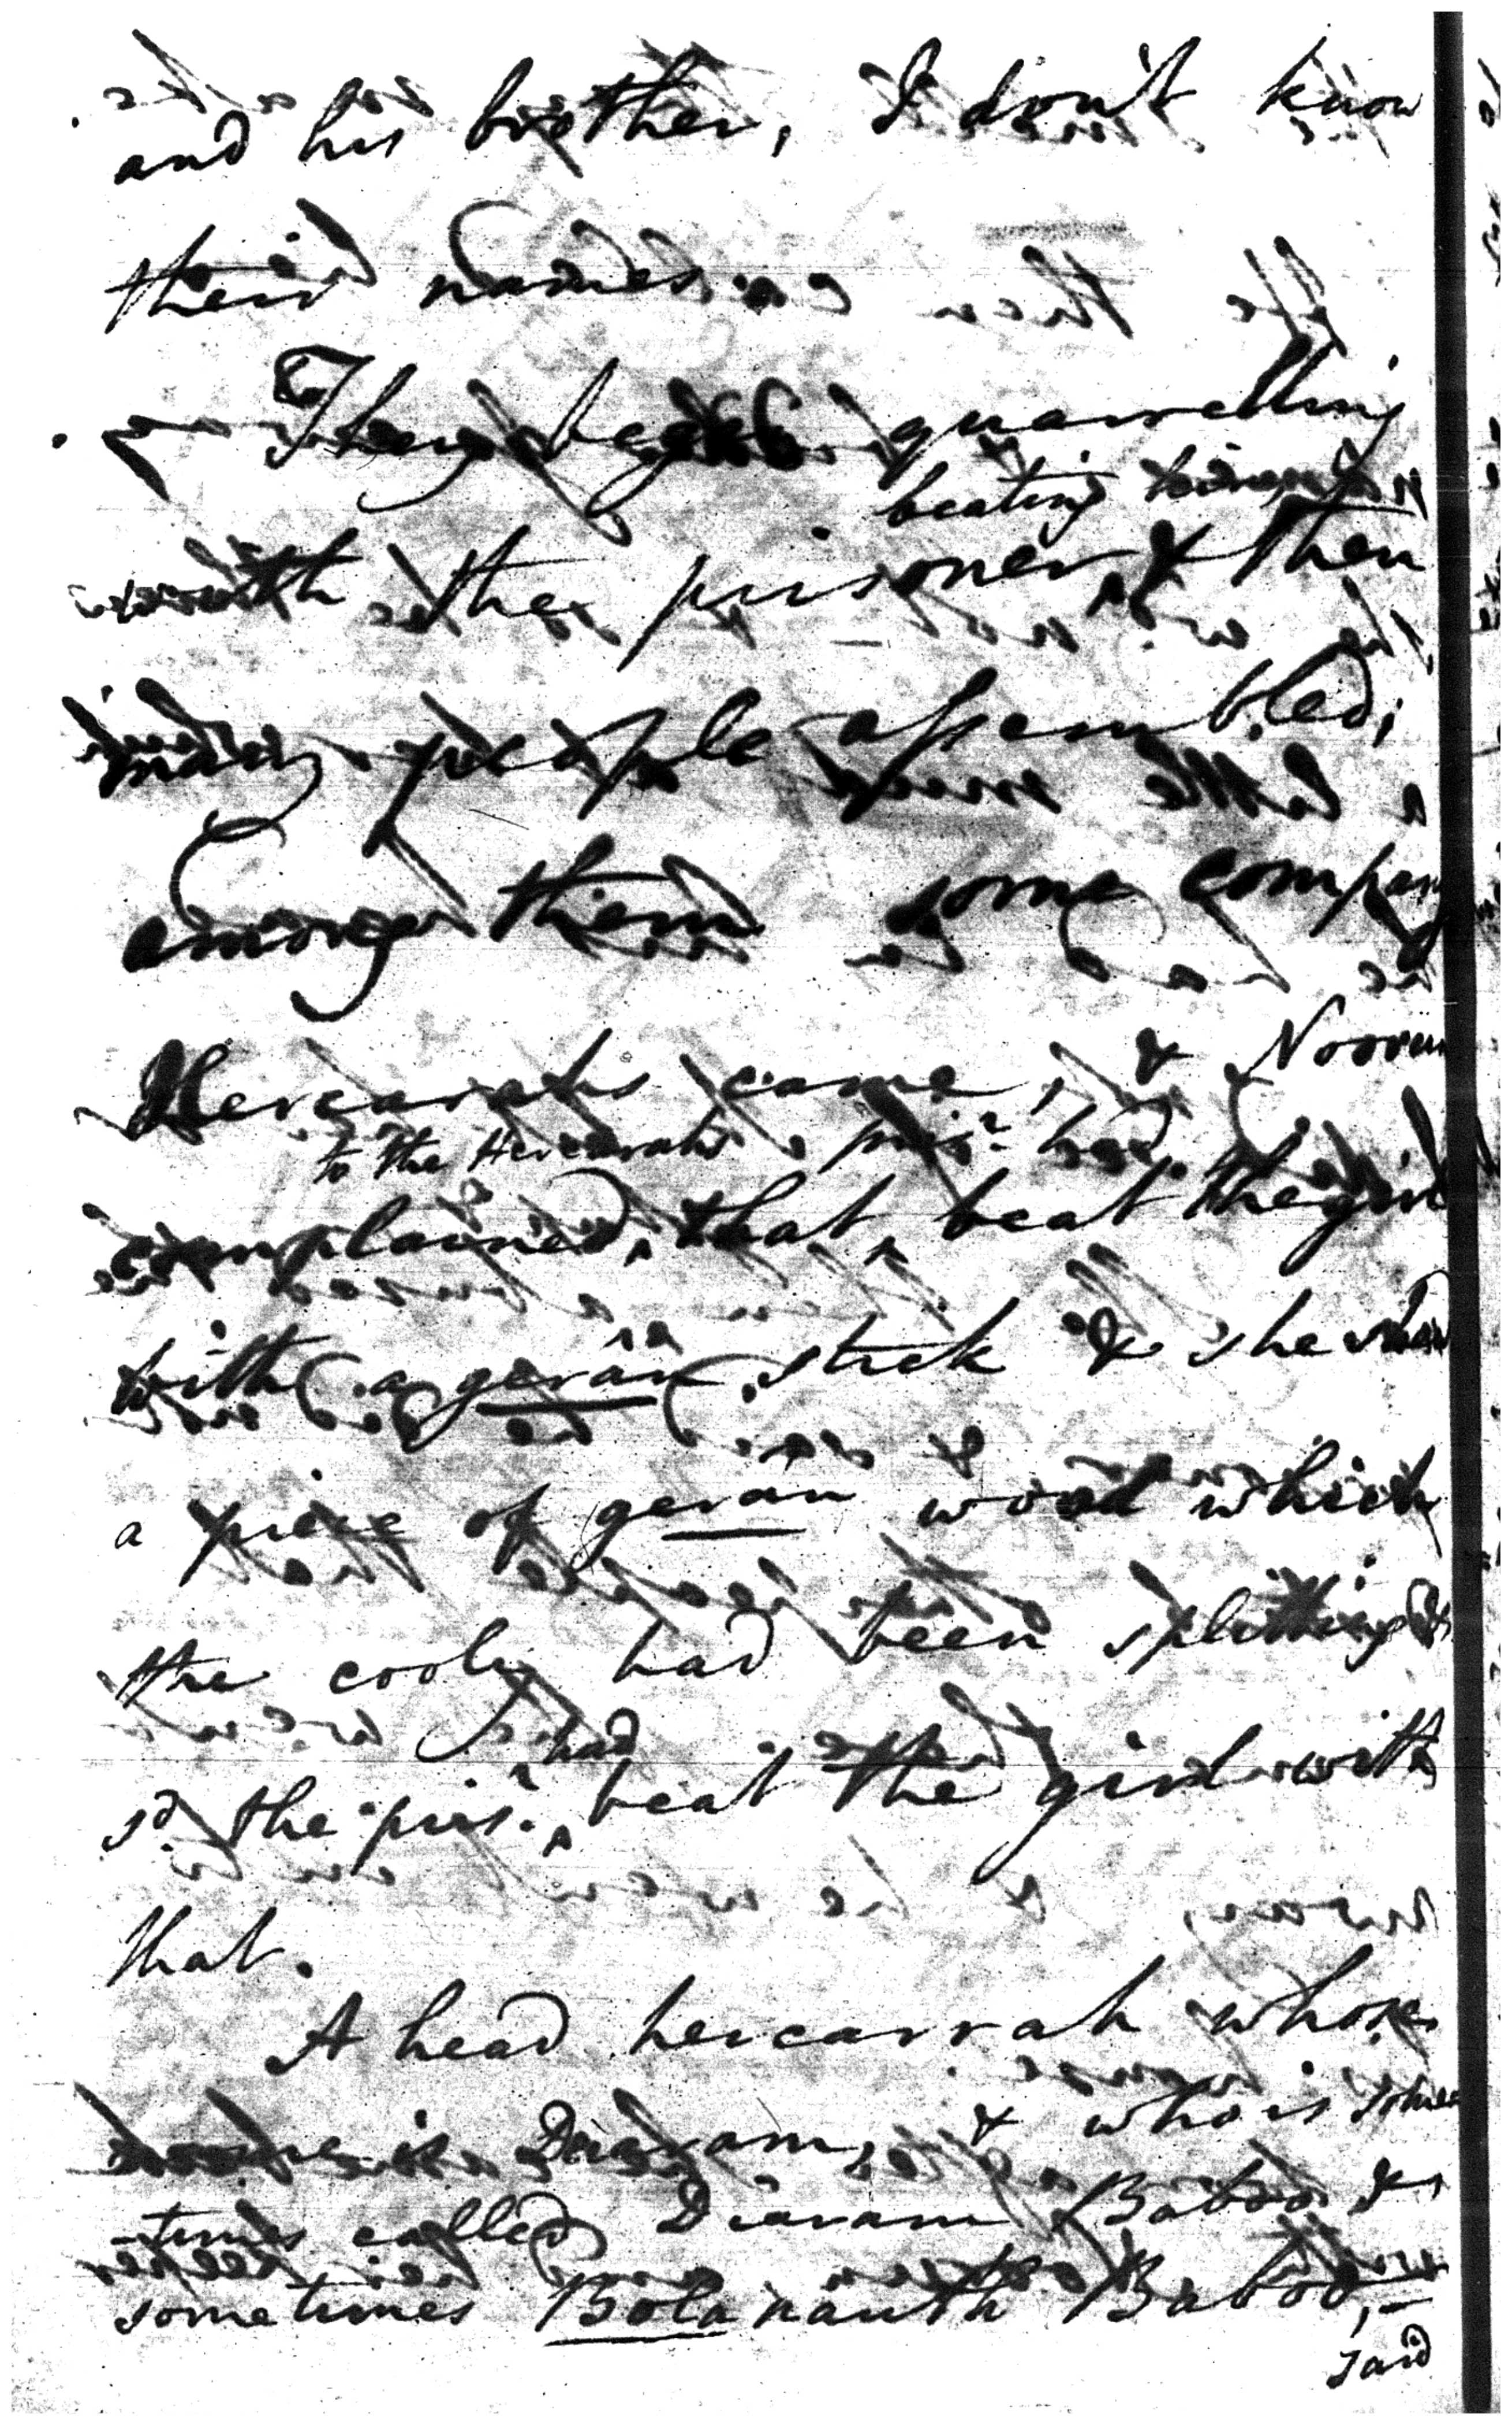 and his brother, I don't know
their names
They began quarrelling
beating him
with the prisoner, & then
many people assembled,
among them some company
Hercarrahs came, & Noorun
to the Hercarrahs pris.r had
complained, that, beat the girl
with a gerān stick & she shew
a piece of gerān wood which
the cooly had been splitting &
had
sd. the pris.r beat the girl with
that.
A head hercarrah whose
name is Diaram, & who is some
-times called Diaram Baboo &
sometimes Bolanauth Baboo,—
said